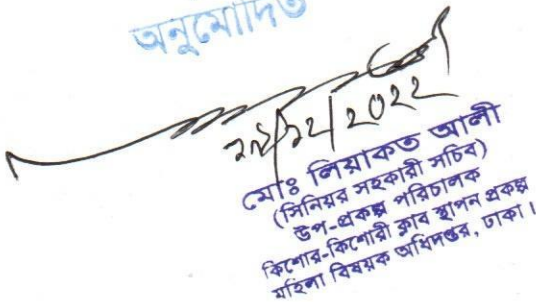 অনুমোদিত
২৮/১২/২০২২
মোঃ লিয়াকত আলী
(সিনিয়র সহকারী সচিব)
উপ-প্রকল্প পরিচালক
কিশোর-কিশোরী ক্লাব স্থাপন প্রকল্প
মহিলা বিষয়ক অধিদপ্তর, ঢাকা।